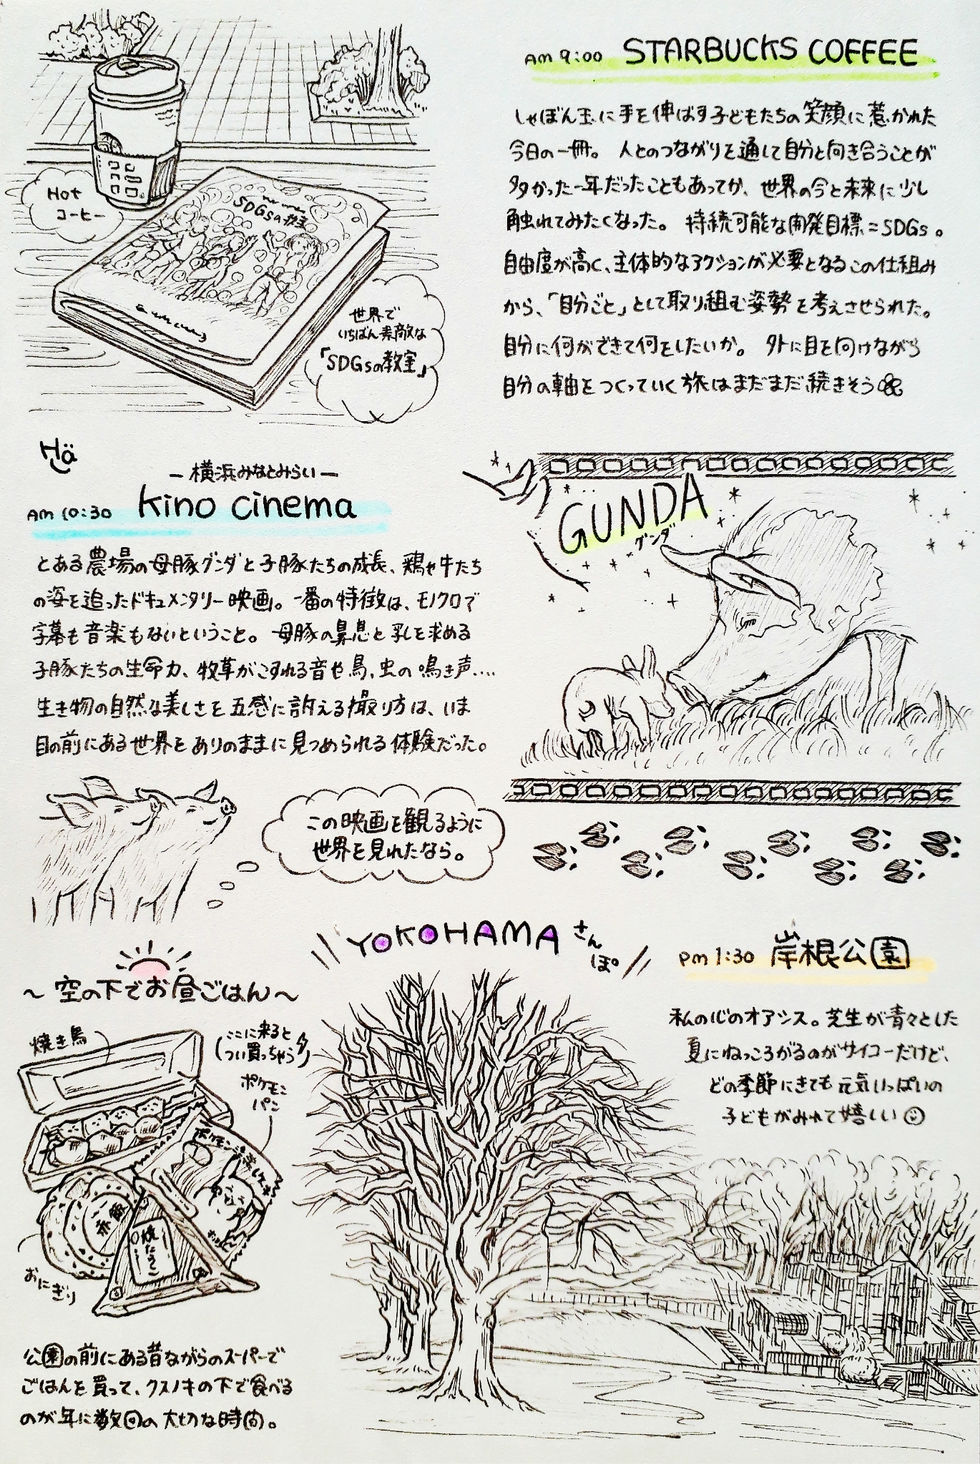 Am 9:00 STARBUCKS COFFEE
しゃぼん玉に手を伸ばす子どもたちの笑顔に惹かれた
今日の一冊。 人とのつながりを通して自分と向き合うことが
多かった一年だったこともあってか、世界の今と未来に少し
触れてみたくなった。 持続可能な開発目標=SDGs。
自由度が高く、主体的なアクションが必要となるこの仕組み
から、「自分ごと」として取り組む姿勢を考えさせられた。
自分に何ができて何をしたいか。 外に目を向けながら
自分の軸をつくっていく旅はまだまだ続きそう
Hot
コーヒー
SDGsの教室
世界で
いちばん素敵な
「SDGsの教室」
Hä
ー横浜みなとみらいー
Am 10:30 kino cinema
とある農場の母豚グンダと子豚たちの成長、鶏や牛たち
の姿を追ったドキュメンタリー映画。一番の特徴は、モノクロで
字幕も音楽もないということ。 母豚の鼻息と乳を求める
子豚たちの生命力、牧草がこすれる音や鳥、虫の鳴き声....
生き物の自然な美しさを五感に訴える撮り方は、いま
目の前にある世界をありのままに見つめられる体験だった。
GUNDA
グンダ
この映画を観るように
世界を見れたなら。
YOKOHAMA さんぽ
pm 1:30 岸根公園
私の心のオアシス。芝生が青々とした
夏にねっころがるのがサイコーだけど、
どの季節にきても元気いっぱいの
子どもがみれて嬉しい
〜空の下でお昼ごはん〜
焼き鳥
(ここに来ると
つい買っちゃう)
ポケモン
パン
赤飯
焼たらこ
おにぎり
公園の前にある昔ながらのスーパーで
ごはんを買って、クスノキの下で食べる
のが年に数回の大切な時間。